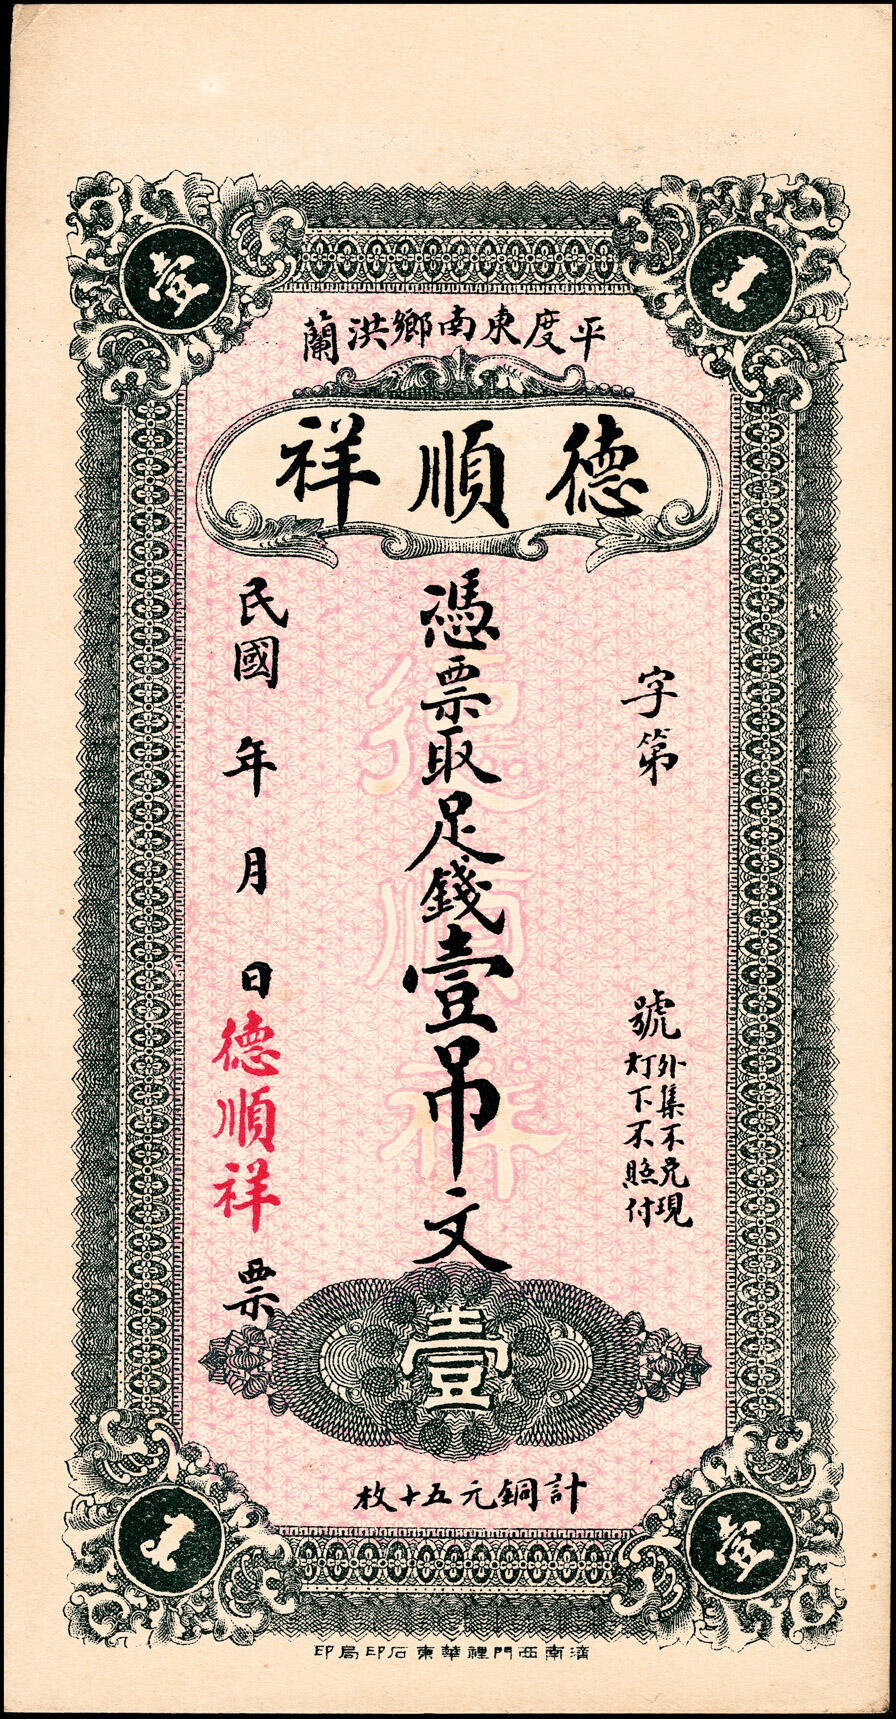 壹
1
平度東南鄉洪蘭
德順祥
字第
號
外集不兌現
灯下不照付
憑票取足錢壹吊文
德順祥
民國
年
月
日
德順祥
票
壹
計銅元五十枚
1
壹
濟南西門裡華東石印局印